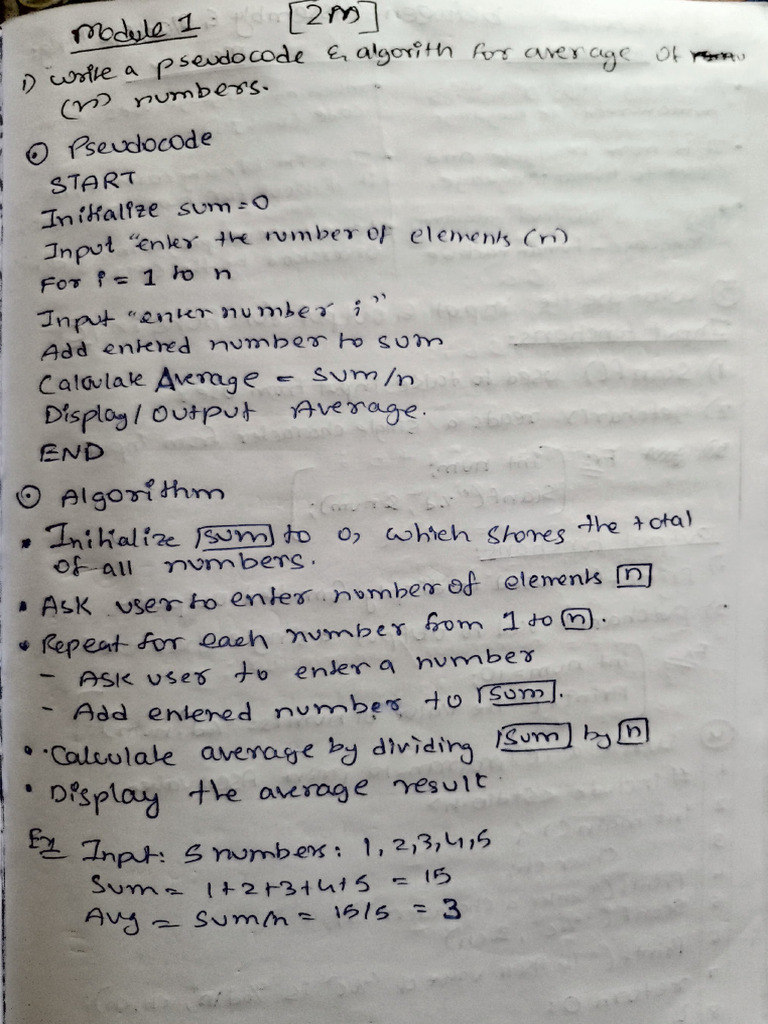 Module 1 [2M]
1) Write a pseudocode & algorith for average of
(n) numbers.
⊙ Pseudocode
START
Initialize sum=0
Input "enter the number of elements (n)
For i = 1 to n
Input "enter number i"
Add entered number to sum
Calculate Average = sum/n
Display/Output Average.
END
⊙ Algorithm
• Initialize sum to 0, which stores the total
of all numbers.
• Ask user to enter number of elements n
• Repeat for each number from 1 to n.
- Ask user to enter a number
- Add entered number to sum.
• Calculate average by dividing sum by n
• Display the average result.
Ex Input: 5 numbers: 1,2,3,4,5
Sum = 1+2+3+4+5 = 15
Avg = sum/n = 15/5 = 3